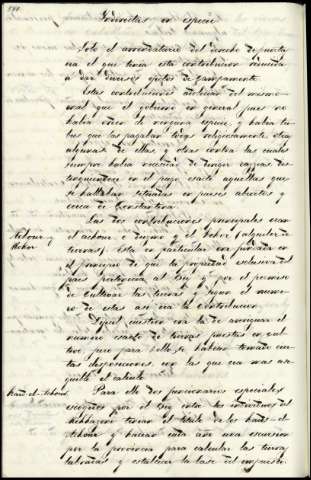 Indirectas en especie
Solo el arrendatario del derecho de puerta
era el que tenia esta contribucion reducida
a dar diversos efectos de campamento
Estas contribuciones
que el gobierno en general pues no
habia orden de ninguna especie y habia tri-
bus que las pagaban todas religiosamente otras
algunas de ellas y otras contra las cuales
siempre habia necesidad de dirigir
en el pago esacto aquellas que
se hallaban situadas en paises abiertos y
cerca de Constantina
Las dos contribuciones principales eran
Achour y
Hokor
el achour o diezmo y el hokor (alquiler de
tierras) Esta en particular era fundada en
el principio de que la propiedad esclusiva del
pais pertenecia al Bey y por el permiso
de cultivar las tierras y segun el nume-
ro de estas asi era la contribucion
Dificil cuestion era la de averiguar el
numero esacto de tierras puestas en cul-
tivo pero para ello se habian tomado cier-
tas disposiciones con las que era mas a-
el calculo
Kaid el-Achour
Para ello dos funcionarios especiales
escogidos por el Bey entre los individuos del
Makhzen tenian el titulo de los kaid-el-
Achour y hacian cada año una escursion
por la provincia para calcular las tierras
labradas y establecer la base del impuesto